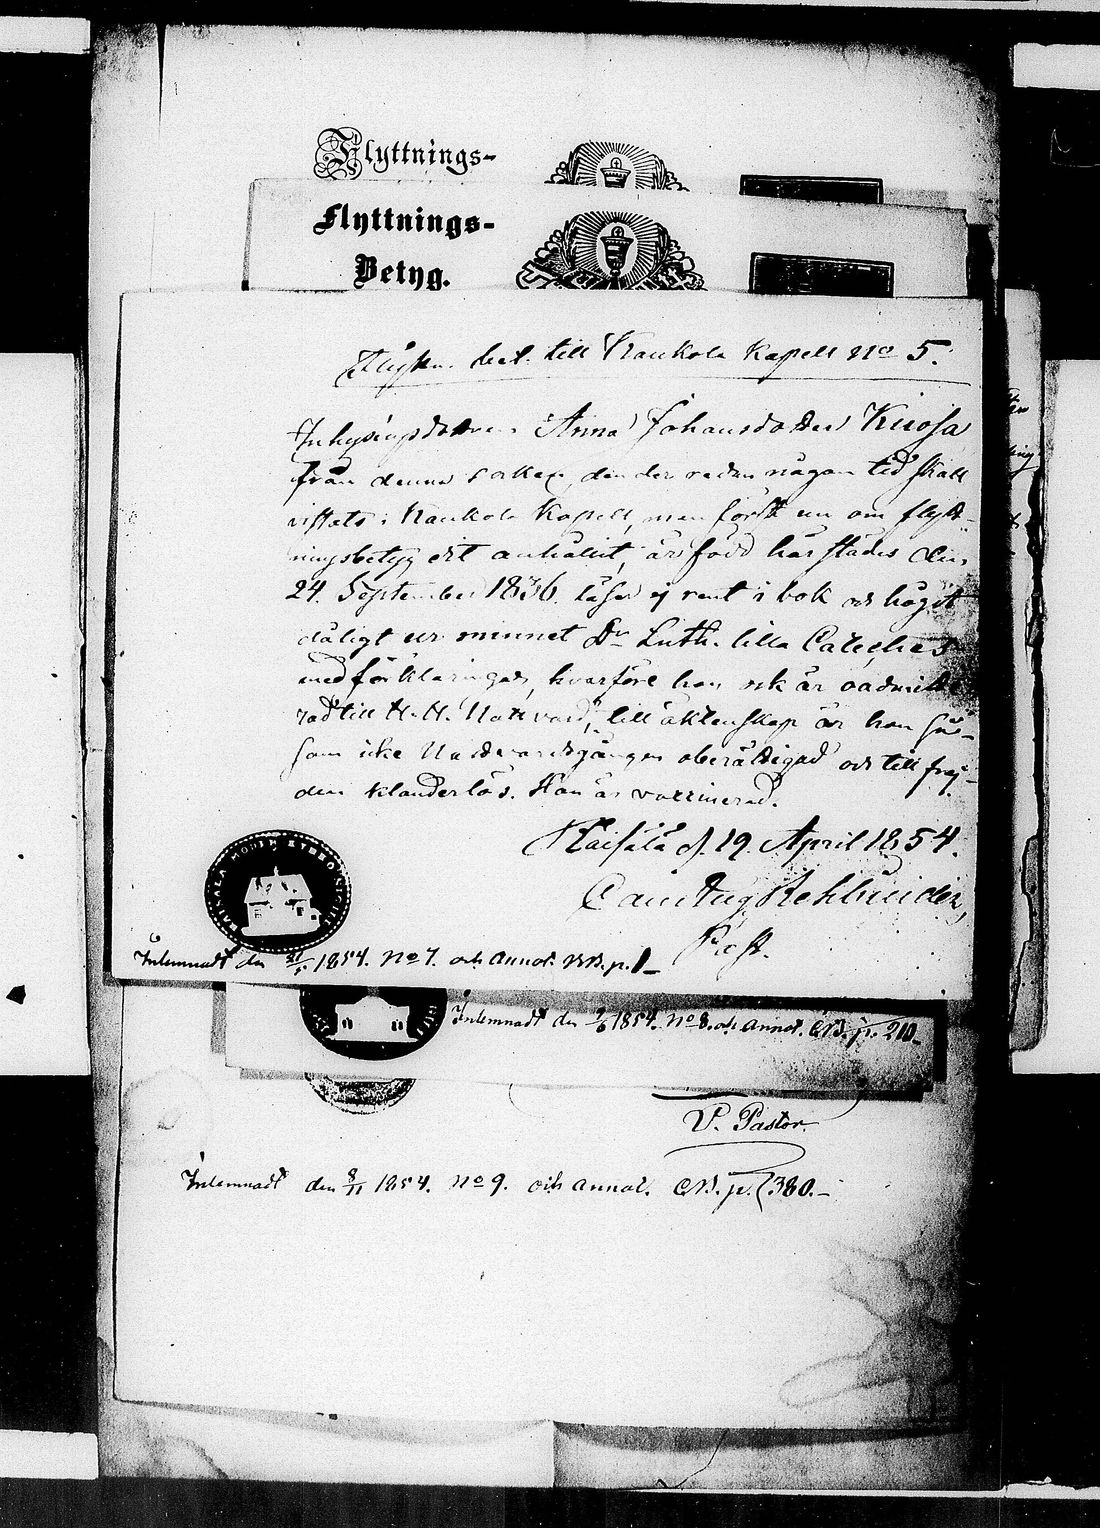 Flyttnings-
Flyttnings-
Betyg.
Flyttn. bet. till Kaukola Kapell No 5.
Inhysingsdottren Anna Johansdotter Kuosa
från denna socken, den der redan någon tid skall
vistats i Kaukola Kapell, men först nu om flytt-
ningsbetyg dit anhållit, är född härstädes den
24. September 1836. läser ej rent i bok och högst
dåligt ur minnet Dr Luth. lilla Cateches
med förklaringar, hvarföre hon ock är oadmitte-
rad till H. H. Nattvard, till äktenskap är hon så-
som icke Nattvardsgången oberättigad och till frej-
den klanderlös. Hon är vaccinerad.
Räisälä d. 19. April 1854.
Rehbinder,
Past.
RÄISÄLÄ MODER KYRKO SIGILL
Inlemnadt den 1854. No 7. och annot. p. 1-
Inlemnadt den 2/6 1854. No 8. och annot. CB. p. 210-
V. Pastor.
Inlemnadt den 8/11 1854. No 9. och annot. CB. p. 380.-